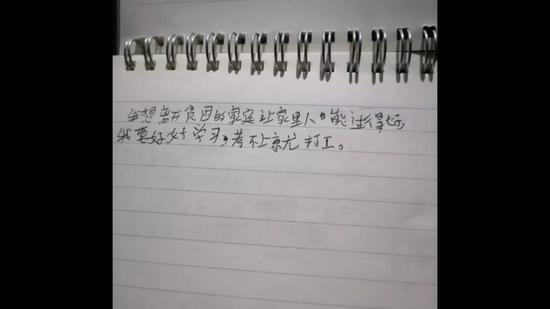 我想离开贫困的家庭让家里人能过得好
我要好好学习,考不上就打工。